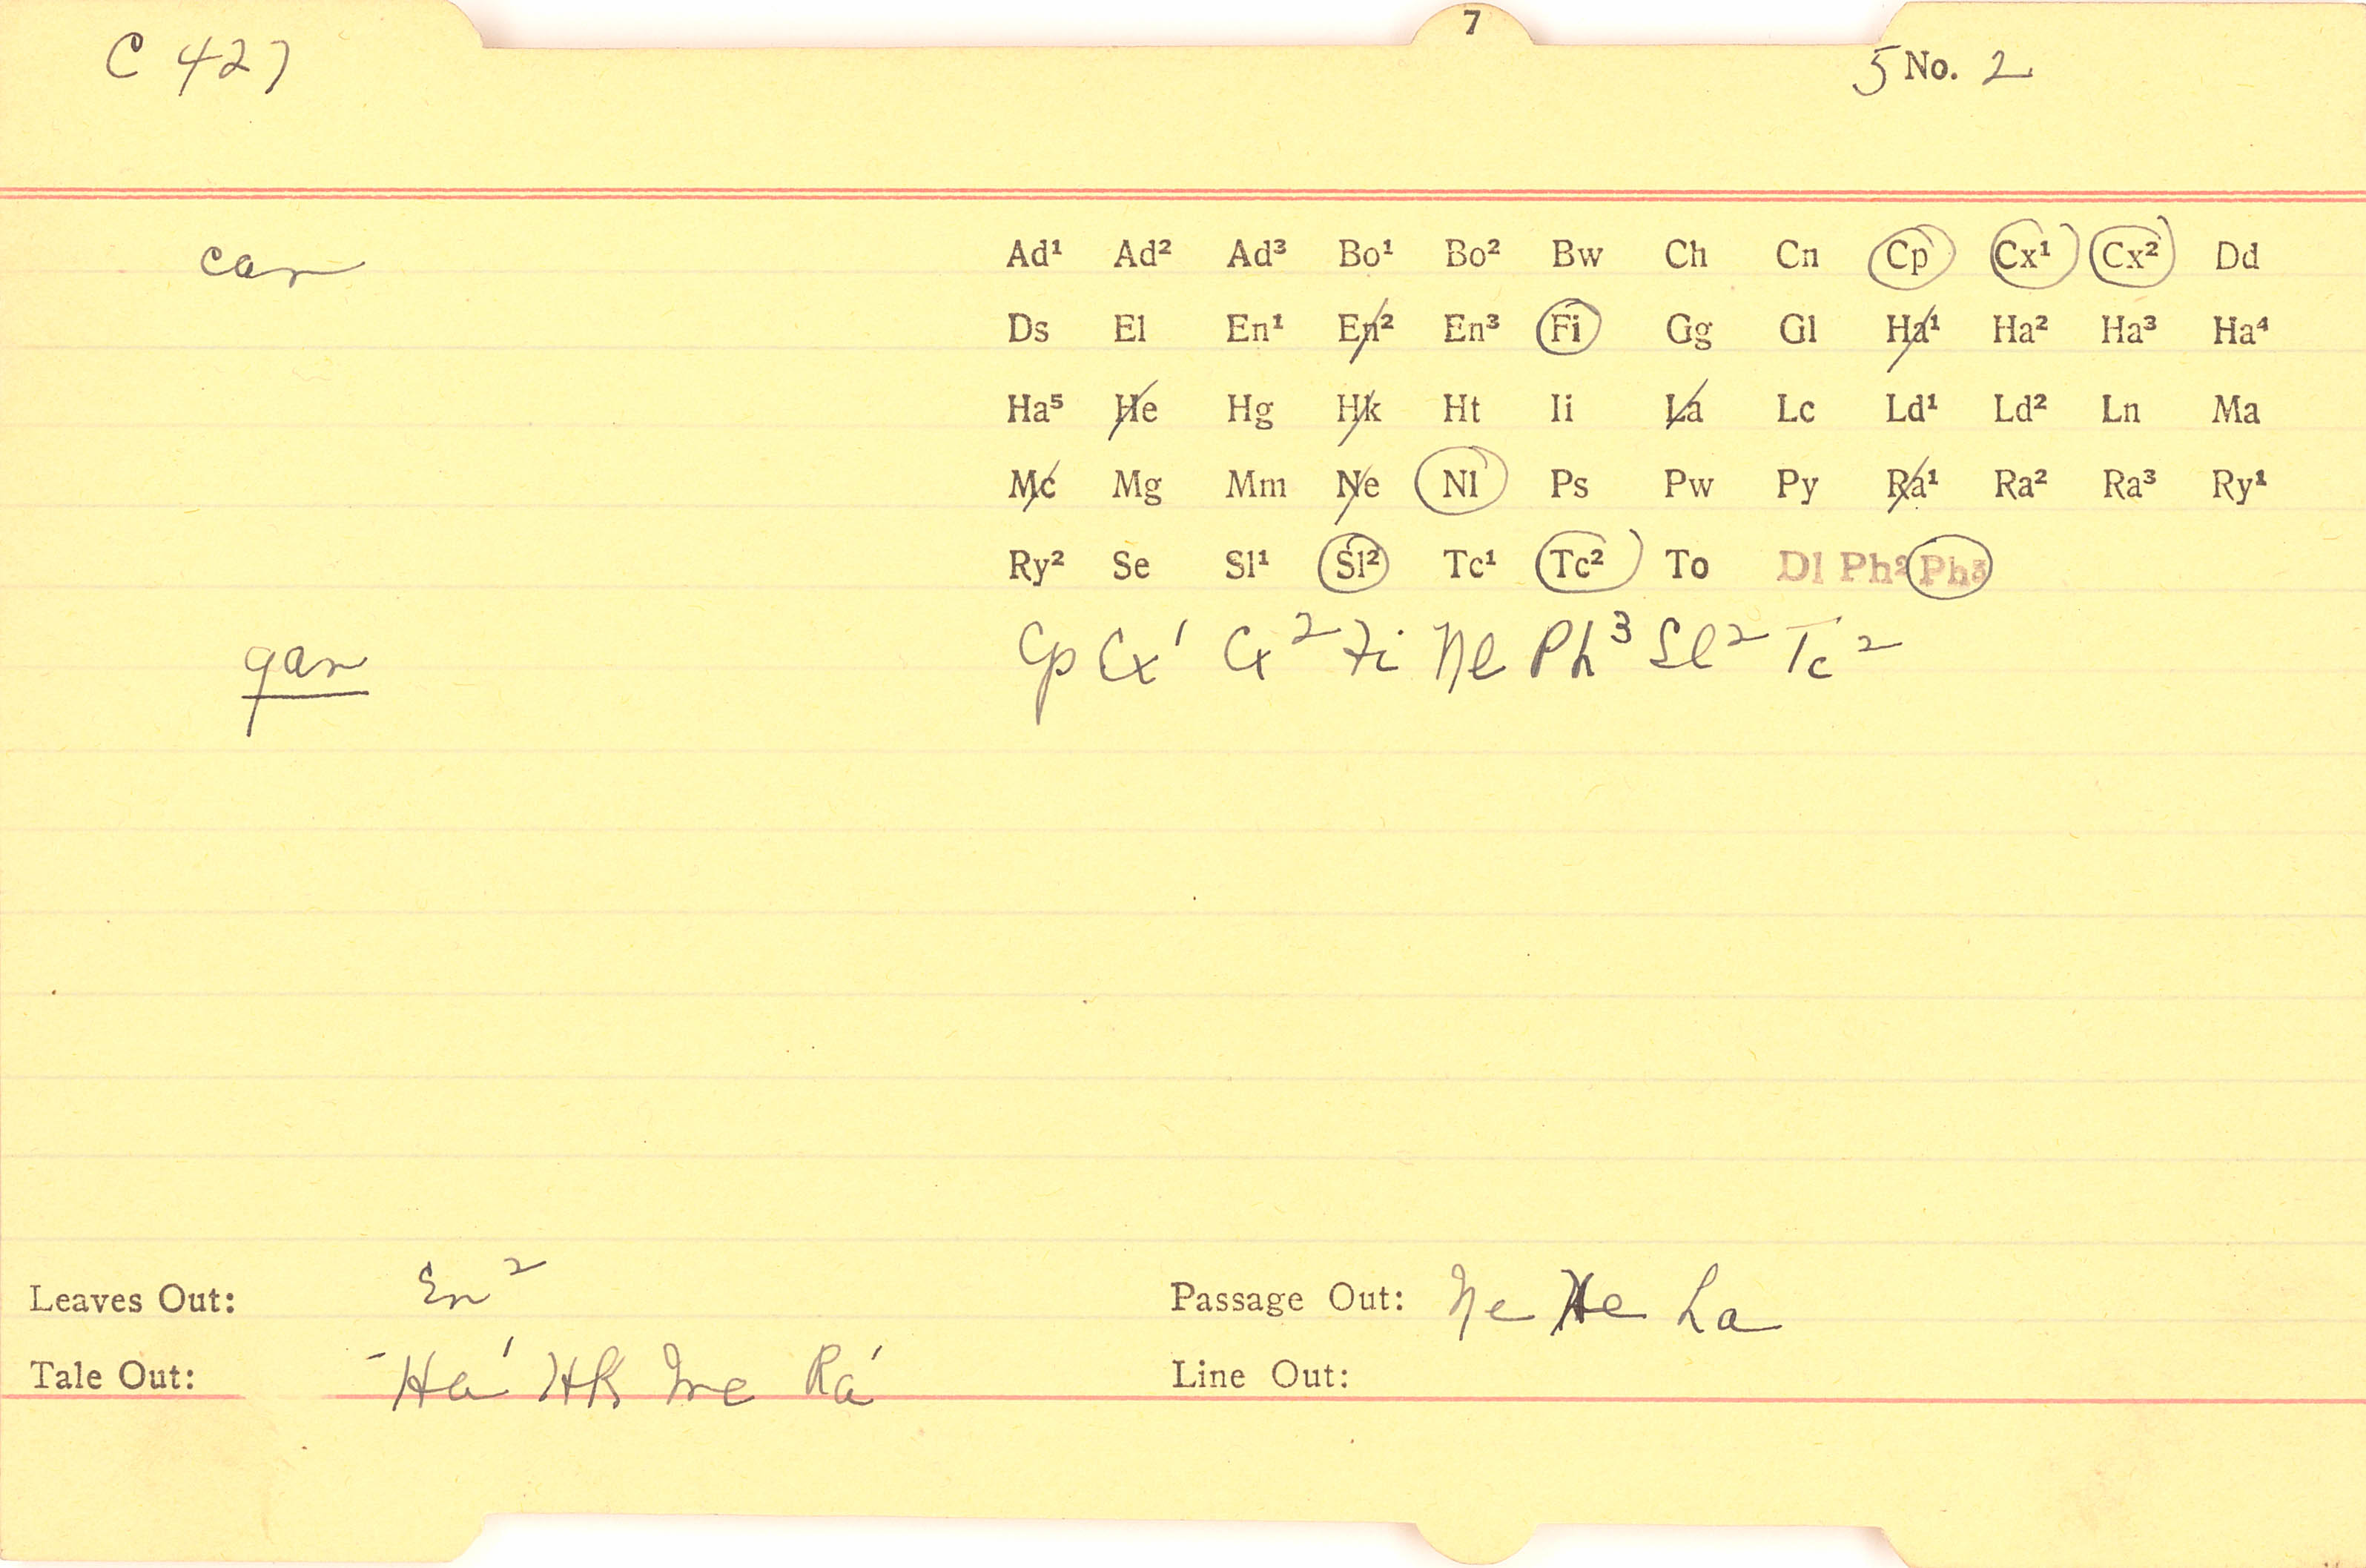 7
C 427
5 No. 2
can Ad¹ Ad² Ad³ Bo¹ Bo² Bw Ch Cn Cp Cx¹ Cx² Dd
Ds El En¹ En² En³ Fi Gg Gl Ha¹ Ha² Ha³ Ha⁴
Ha⁵ He Hg Hk Ht Ii La Lc Ld¹ Ld² Ln Ma
Mc Mg Mm Ne Nl Ps Pw Py Ra¹ Ra² Ra³ Ry¹
Ry² Se Sl¹ Sl² Tc¹ Tc² To Dl Ph² Ph³
gan Cp Cx¹ Cx² Fi Nl Ph³ Sl² Tc²
Leaves Out: En² Passage Out: Ne He La
Tale Out: Ha¹ Hk Mc Ra¹ Line Out: